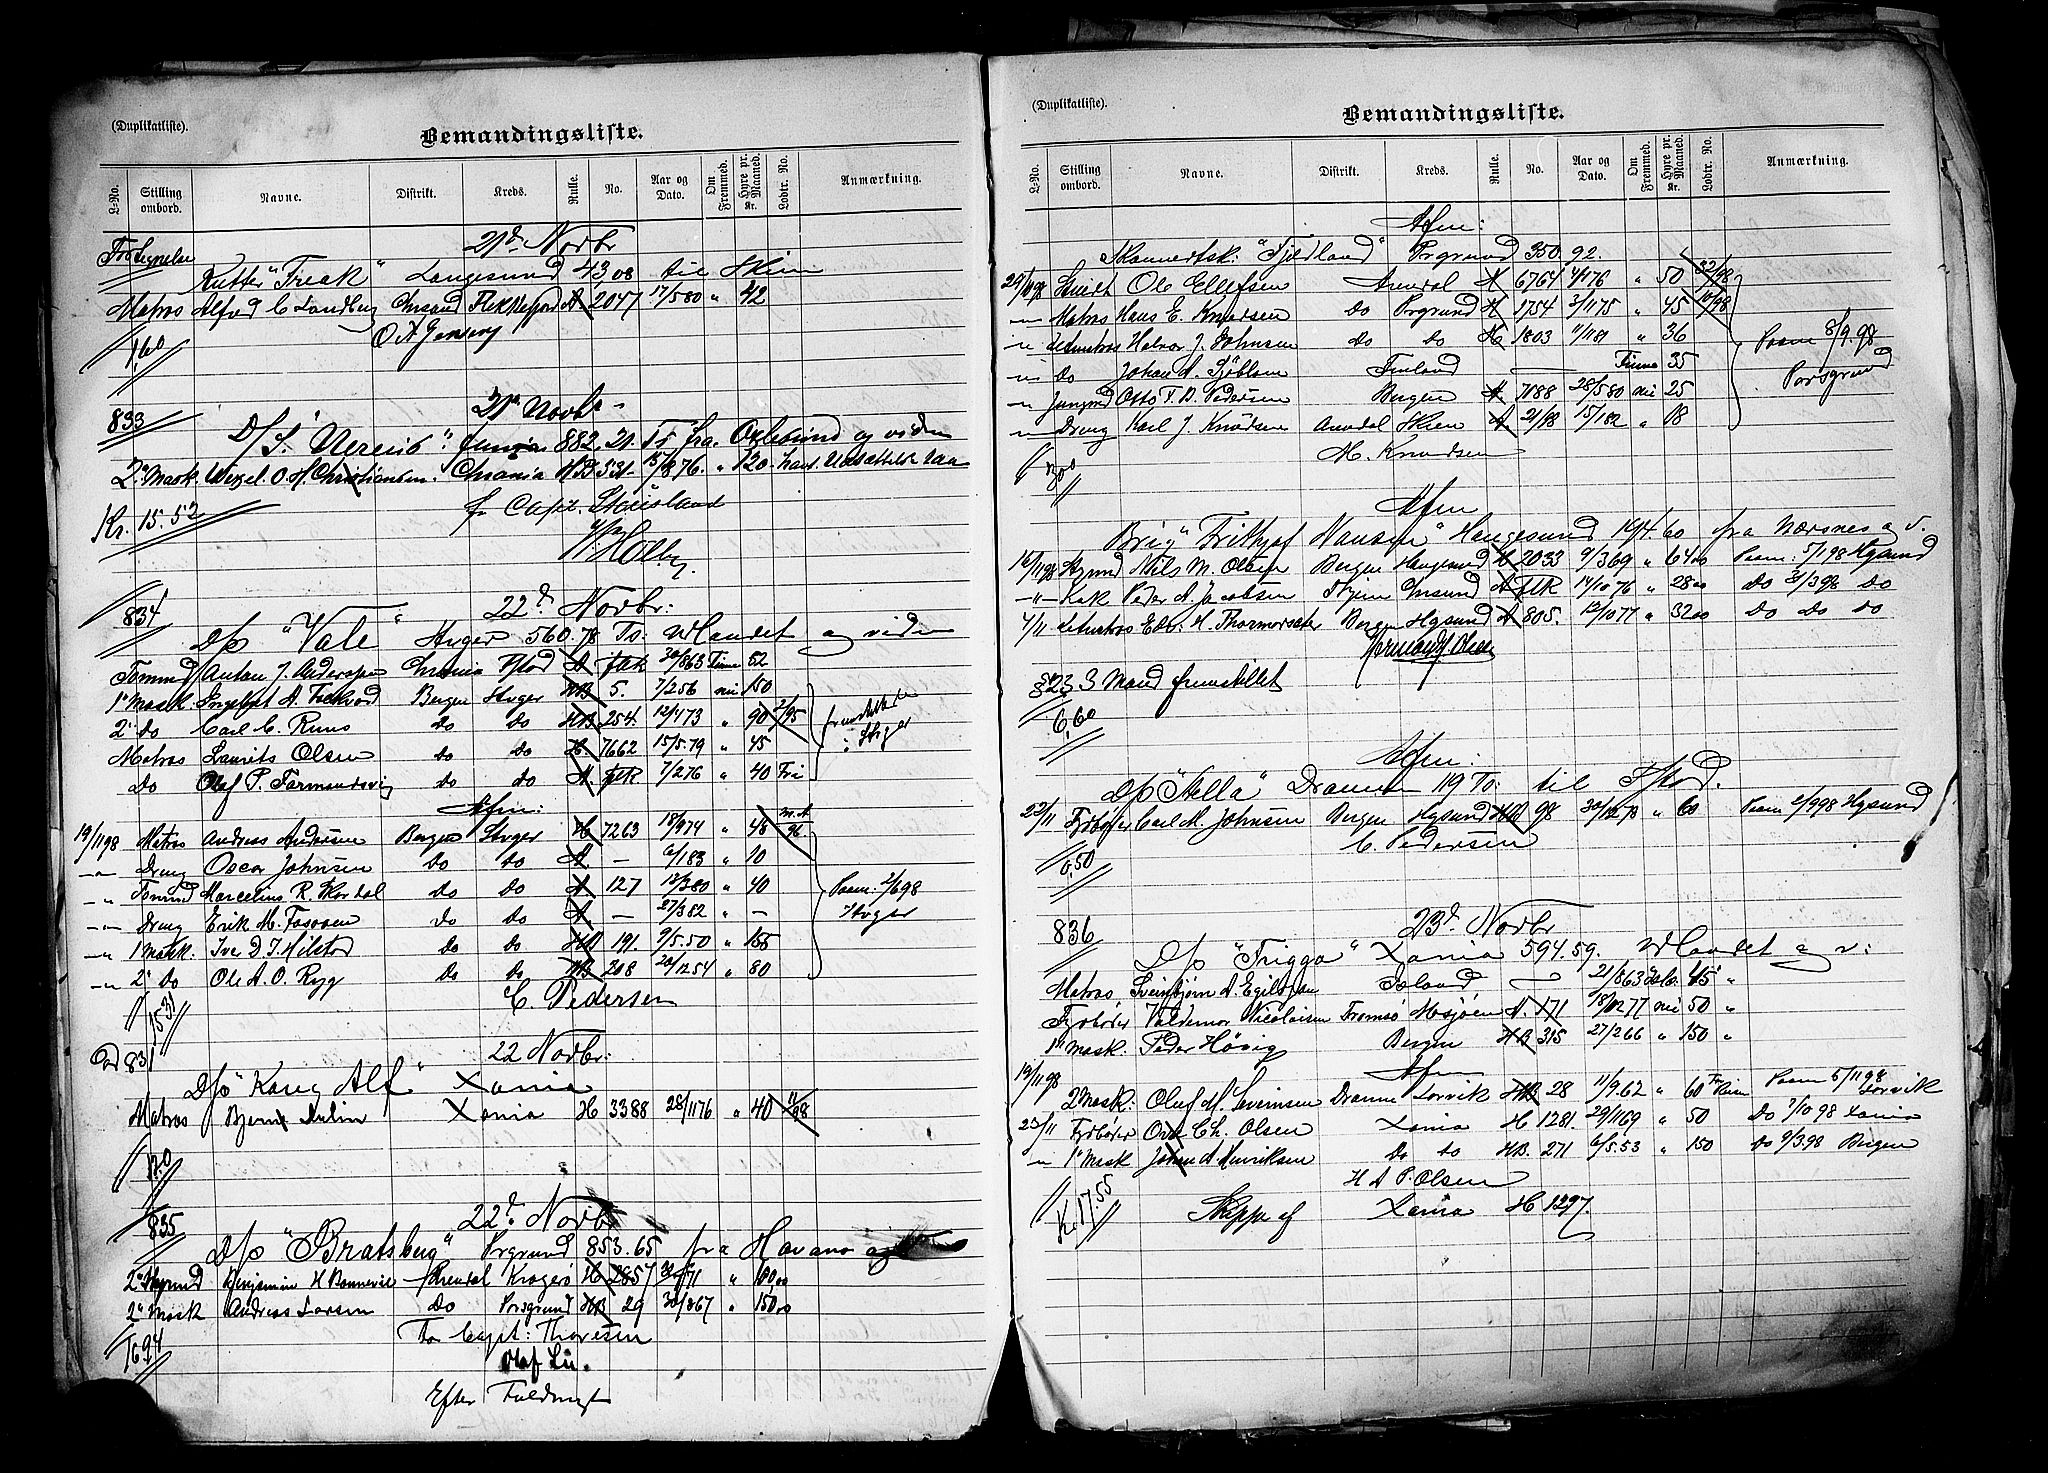 (Duplikatliste).
Bemandingsliste.
L-No. Stilling ombord. Navne. Distrikt. Kreds. Rulle. No. Aar og Dato. Om Fremmed. Hyre pr. Maaned. Kr. Lodtr. No. Anmærkning.
21d Novbr
Kutter "Freak" Langesund 43,08 til Skien
Matros Alfred C Lundberg Chrsand Flekkefjord A 2047 17/5 80 " 42
O A Jensen
1,60
21d Novbr
833
D/S. "Nereus" 882.21. Ts fra og viden
2d Mask. O. M. Christiansen. Chrania HB 331 15/8 76. " 120
Kr. 15.52
fr Capt.
834
22d Novbr:
D/s "Vale" Stvger 560.78 Ts: Udlandet og viden
Tømmd Anton J. Anderson Chrania Fstad A flk 30/8 63 52
1ste Mask. A. Bergen Stvger HB 5. 7/2 56 nei 150
2d Do Carl C. Do Do HB 254. 12/4 73 " 90 2/95 Stvger
Matros Laurits Olsen Do Do H. 7662 15/5.79 " 45
Do Olaf P. Do Do A. flk 7/2 76 " 40 Fri
Afm:
19/11 98 Matros Andreas Andersen Bergen Stvger H 7263 18/9 74 " 48 96
-"- Dreng Oscar Johnsen Do Do A. — 6/1 83 " 10
-"- Tømmd Marcelius R. Do Do A 127 12/3 80 " 40 Paam. 2/6 98
-"- Dreng Erik M. Do Do A. — 27/3 82 " — Stvger
-"- 1 Mask. Do Do HB 191. 9/5.50 " 155
-"- 2d Do Ole A. O. Rygg Do Do HB 208 20/12 54 " 80
C. Pedersen
15.31
831
22 Novbr:
D/s "Kong Alf" Xania
Matros Xania H 3388 28/11 76 " 40 11/98
1.20
835
22d. Novbr
D/s "Bratsberg" Prgrund 853.65 fra Havana
2d Styrmd Benjamin H Arendal Kragerø H 2857 71 " 100.00
2d Mask Andreas Larsen Do Porsgrund HB 29 30/8 67 " 150.00
For Capt: Thoresen
Olaf Lie.
Efter Fuldmagt
16.94
(Duplikatliste).
Bemandingsliste.
L-No. Stilling ombord. Navne. Distrikt. Kreds. Rulle. No. Aar og Dato. Om Fremmed. Hyre pr. Maaned. Kr. Lodtr. No. Anmærkning.
Afm:
Skonnertsk: "Fjeldland" Prgrund 350.92.
Ole Ellefsen Arendal A 6764 4/1 76 " 50 32/98
-"- Matros Hans E. Knudsen Do Prgrund H 1754 3/11 75 " 45 10/98
-"- Letmatros Halvor J. Johnsen Do Do H 1803 11/1 81 " 36 Paam 8/9.98
-"- Do Johan A. Sjöblom Finland — 35 Porsgrund
-"- Jungmd Otto F. B. Pedersen Bergen A. 7188 28/5 80 nei 25
-"- Dreng Karl J. Knudsen Arendal Skien A 15/1 82 " 18
M. Knudsen
Afm
Brig "Frithjof Nansen" Haugesund 194.60 fra Nærsnes o. v.
16/11 98 Styrmd Nils M. Olsen Bergen Haugesund H 2033 9/3 69 " 64 00 Paam: 5/11 98 Hgsund
-"- Kok Peder A Jacobsen Chrsund A flk 14/10 76 " 28 00 Do 31/3 98 Do
4/11 Letmatros Edv. H. Thormodsæter Bergen Hgsund A 805. 12/10 77 " 32 00 Do Do Do
Olsen
3 Mand fremstillet
6,60
Afm:
D/s "Stella" Drammen 119 To: til Fstad.
22/11 Fyrbøter Carl M. Johnsen Bergen Hgsund HB 98 30/12 78 " 60 Paam 2/9 98 Hgsund
C. Pedersen
0,50
836
23d. Novbr
D/s "Frigga" Xania 594.59. Udlandet o v:
Matros Sveinbjørn A. Egilsson Island — 21/8 63 Isl. 45 "
Fyrbøter Valdemar Nicolaisen Tromsø Msjøen A. 171 18/12 77 nei 50 "
1ste Mask. Peder Høvig Bergen HB 315 27/2 66 " 150 "
Afm
19/11 98
2 Mask: Oluf M. Svensen Dramn Larvik HB 28 11/9.62 " 60 Paam 5/11 98 Larvik
23/11 Fyrbøter Ove Ch. Olsen Xania H 1281. 29/11 69 " 50 Do 7/10 98 Xania
-"- 1ste Mask Johan A Henriksen Do Do HB. 271 6/5.53 " 150 Do 9/3.98 Bergen
H A P. Olsen
Kr 17.55
Skippr af Xania H 1297.